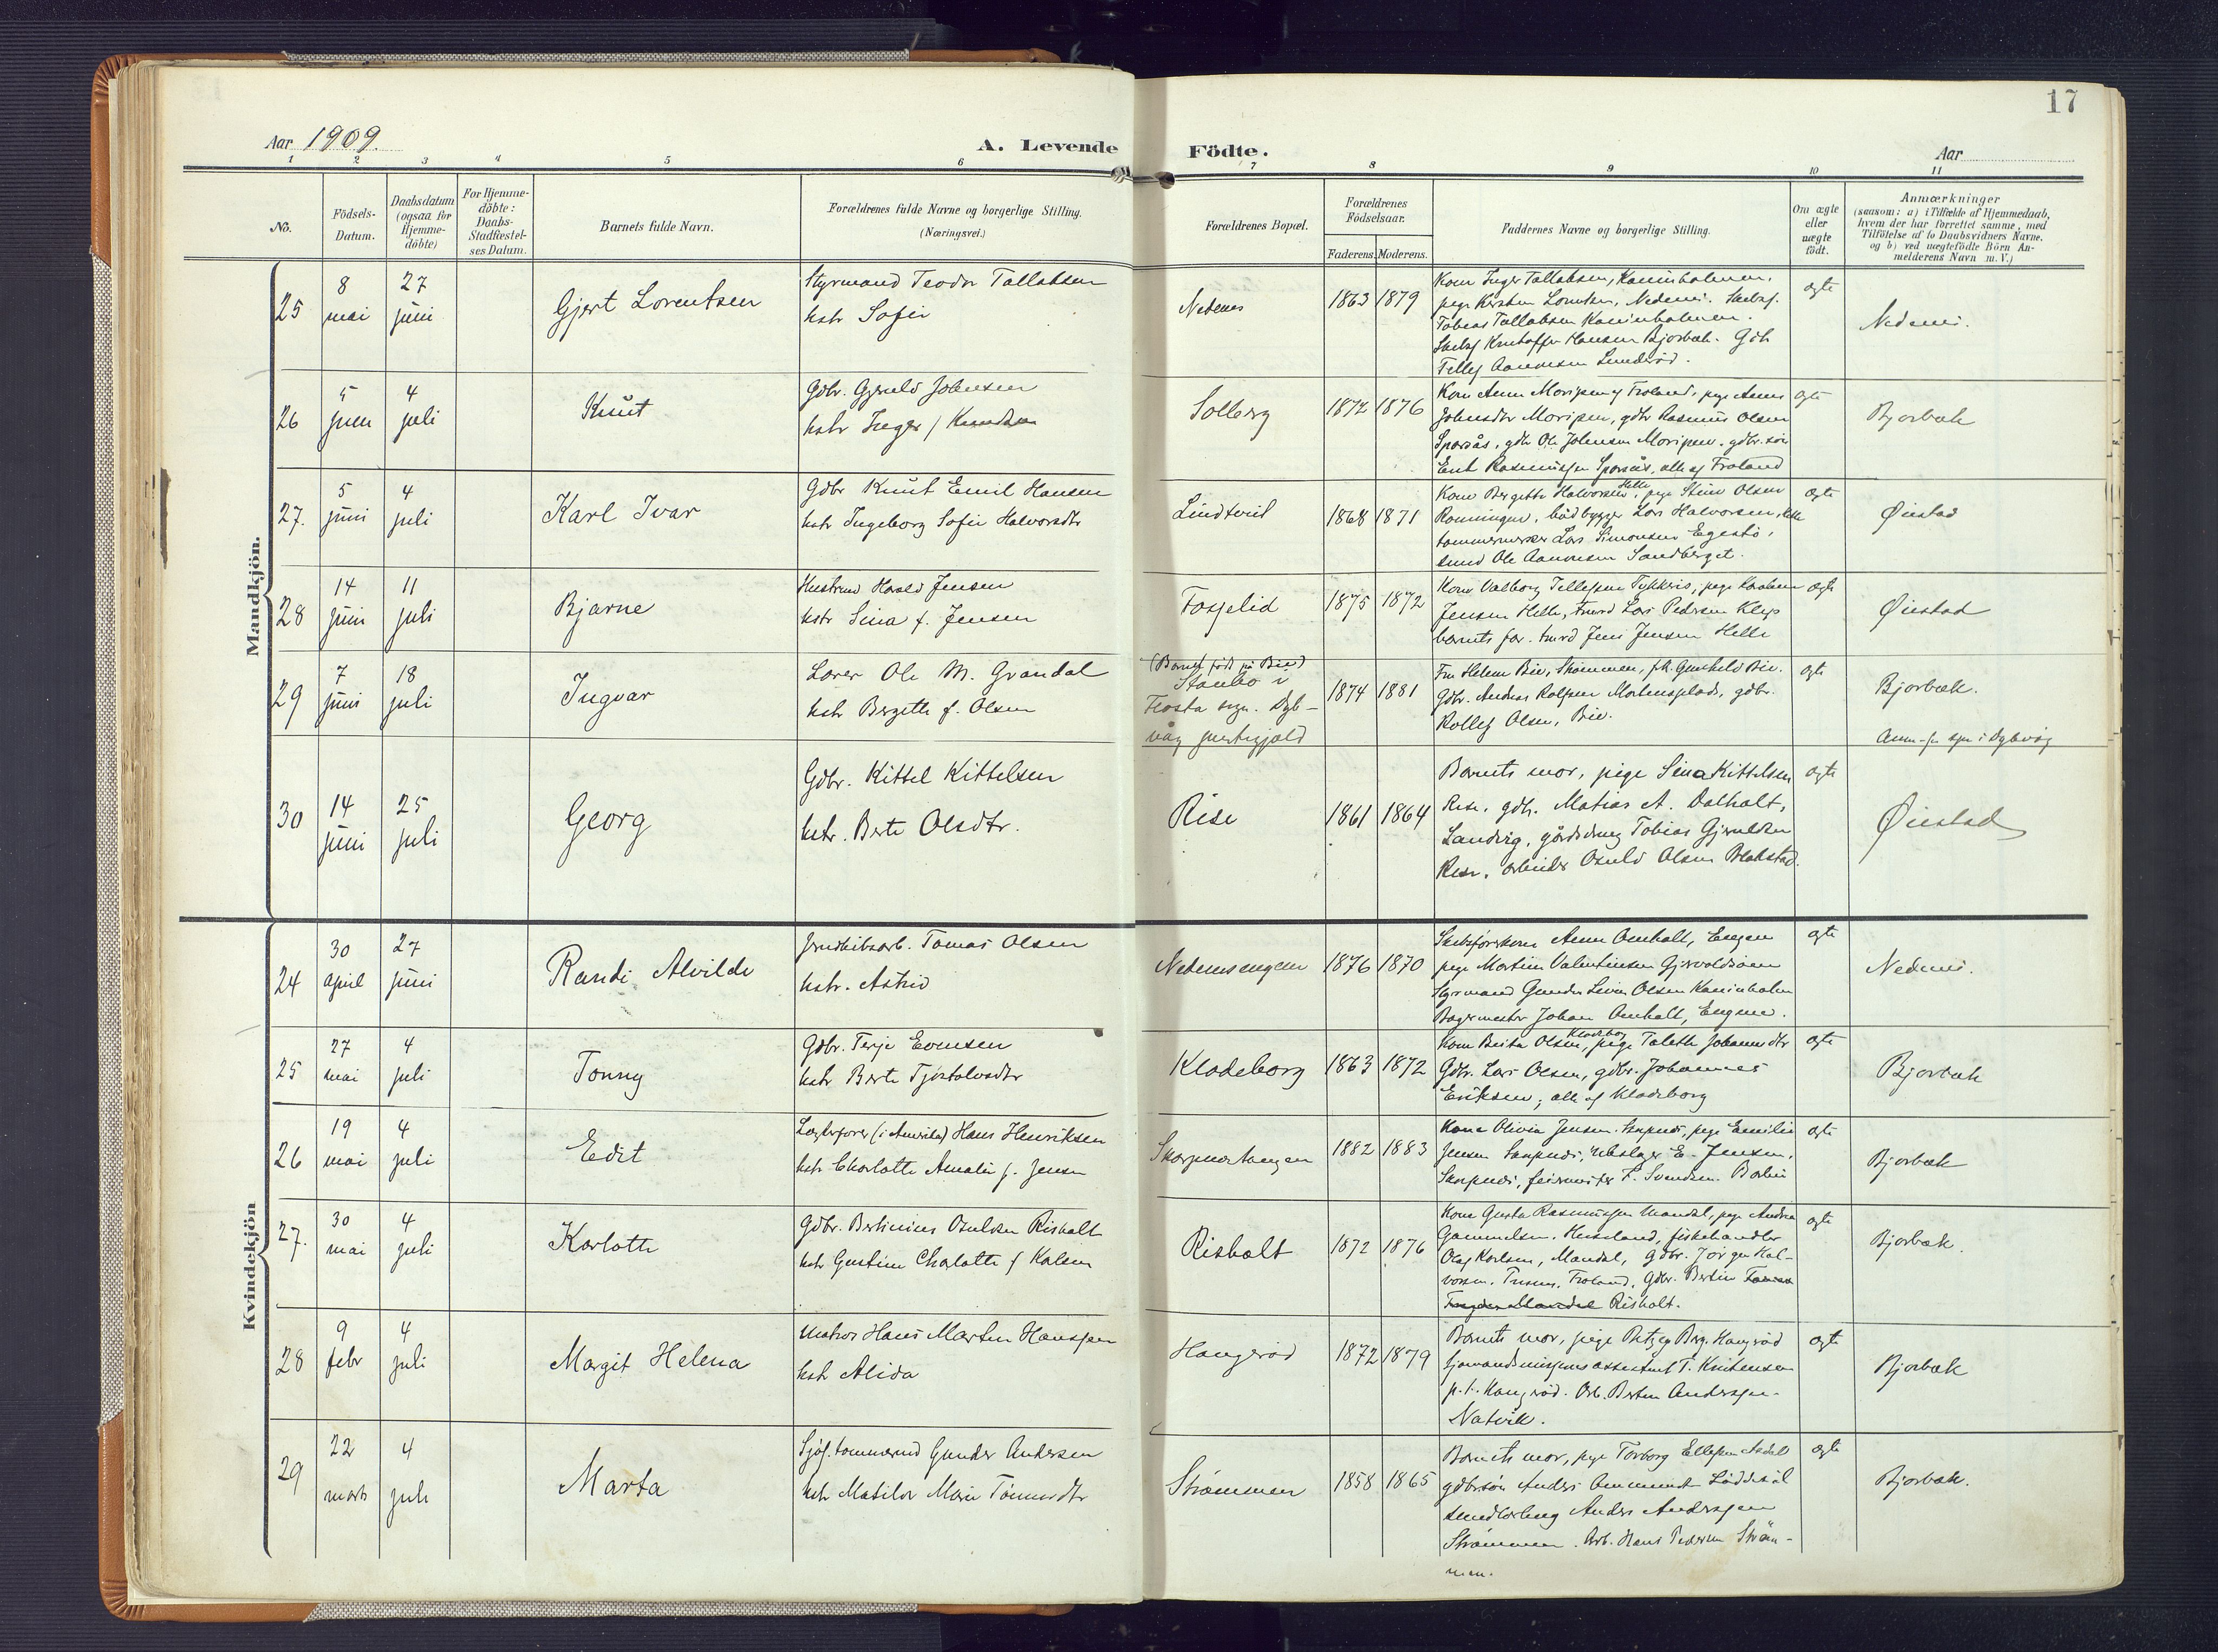 17
Aar 1909.
A. Levende Födte.
Aar
1 2 3 4 5 6 7 8 9 10 11
No.
Födsels-
Datum.
Daabsdatum
(ogsaa for
Hjemme-
döbte)
For Hjemme-
döbte:
Daabs-
Stadfæstel-
ses Datum.
Barnets fulde Navn.
Forældrenes fulde Navne og borgerlige Stilling.
(Næringsvei.)
Forældrenes Bopæl.
Forældrenes
Födselsaar.
Faderens. Moderens.
Faddernes Navne og borgerlige Stilling.
Om ægte
eller
uægte
födt.
Anmærkninger
(saasom: a) i Tilfælde af Hjemmedaab,
hvem der har forrettet samme, med
Tilföielse af to Daabsvidners Navne,
og b) ved uægtefödte Börn An-
melderens Navn m. V.)
Mandkjön.
25
8
mai
27
juni
Gjert Lorentsen
Styrmand Teodor Tallaksen
hstr Sofie
Nedenes
1863 1879
Kone Inger Tallaksen, Kaninholmen.
pige Kirsten Lorentsen, Nedenes. Skibsf.
Tobias Tallaksen Kaninholmen.
Skibsf Kristoffer Hansen Bjorbæk. Gdb
Tellef Aanonsen Lunderød.
ægte
Nedenes.
26
5
juni
4
juli
Knut
Gdbr. Gjeruld Johnsen
hstr Inger f Knudsen
Solberg
1872 1876
Johnsdtr Moripen, gdbr Rasmus Olsen
Sparsås, gdb Ole Johnsen Moripen. gdbr. søn
alle af Froland
ægte
Bjorbæk
27.
5
juni
4
juli
Karl Ivar
Gdbr Knut Emil Hansen
hstr Ingeborg Sofie Halvorsdtr
Lindtveit
1868 1871
Kone Bergitte Halvorsen Helle, pige Stine Olsen
Ronningen, bådbygger Lars Halvorsen, Helle
tømmermand Lars Simonsen Egestø,
smed Ole Aanonsen Sandberget.
ægte
Øiestad
28
14
juni
11
juli
Bjarne
Harald Jensen
hstr Sina f. Jensen
Fosselid
1875 1872
Jensen Helle, Lars Pedersen Klep
barnets far. Jens Jensen Helle
ægte
Øiestad
29
7
juni
18
juli
Ingvar
Lærer Ole M. Grøndal
hstr Bergitte f. Olsen
(Barnet født på Bie)
Staubo i
Flosta sogn. Dyb-
våg prestegjeld
1874 1881
Fru Helene Bie, Strømmen, frk. Gunhild Bie.
Gdbr. Andreas Rolfsen Mortensplads, gdbr.
Rollef Olsen, Bie.
ægte
Bjorbæk.
30
14
juni
25
juli
Georg
Gdbr. Kittel Kittelsen
hstr. Berte Olsdtr.
Rise
1861 1864
Barnets mor, pige Sina Kittelsen
Rise. gdb. Matias A. Dalholt,
Landvig, gårddreng Tobias Gjeruldsen
Rise. arbeider Osuld Olsen Blakstad.
ægte
Øiestad
Kvindekjön
24
30
april
27
juni
Randi Alvilde
Tomas Olsen
hstr. Astrid
Nedenesengen
1876 1870
Skibsførerkone Anna Omholt, Engen
pige Martine Valentinsen Gjervoldsøen
Styrmand Gunder Olsen Kaninholm
Bagermester Johan Omholt, Engene.
ægte
Nedenes.
25
27
mai
4
juli
Tonny
Gdbr. Terje Evensen
hstr Berte Tjøstolvsdtr
Klodeborg
1863 1872
Kone Berta Olsen, Klodeborg pige Talette Johannesdtr
Gdbr. Lars Olsen, gdbr. Johannes
Eriksen, alle af Klodeborg
ægte
Bjorbæk
26
19
mai
4
juli
Edit
(i Amerika) Hans Henriksen
hstr Charlotte Amalie f. Jensen
1882 1883
Kone Olivia Jensen. pige Emilie
Jensen E. Jensen,
F. Svendsen. Barbu
ægte
Bjorbæk
27.
30
mai
4
juli
Karlotte
Gdbr. Bertinius Osuldsen Risholt
hstr Gustine Charlotte f Karlsen
Risholt
1872 1876
Kone Gusta Rasmussen Mandal, pige Andrea
Gammelsen. fiskehandler
Olaf Karlsen, Mandal, Gdbr. Jørgen Hal-
vorsen. Froland, Gdbr. Bertin
Risholt.
ægte
Bjorbæk.
28
9
febr
4
juli
Margit Helena
Matros Hans Martin Hanssen
hstr Alida
Haugerød
1872 1879
Barnets mor, pige
sjømandsmissions assistent T. Kristensen
p.t. Haugerød. Arb. Anderssen
Natvik.
ægt
Bjorbæk
29
22
marts
4
juli
Marta
Gunder Andersen
hstr Matilde Marie Tønnesdtr
Strømmen
1858 1865
Barnets mor, pige Torborg Ellefsen
gdbrsøn Anders Løddesøl
smedlærling Anders Anderssen
Strømmen. Arb. Hans Pedersen Strøm-
men.
ægte
Bjorbæk.